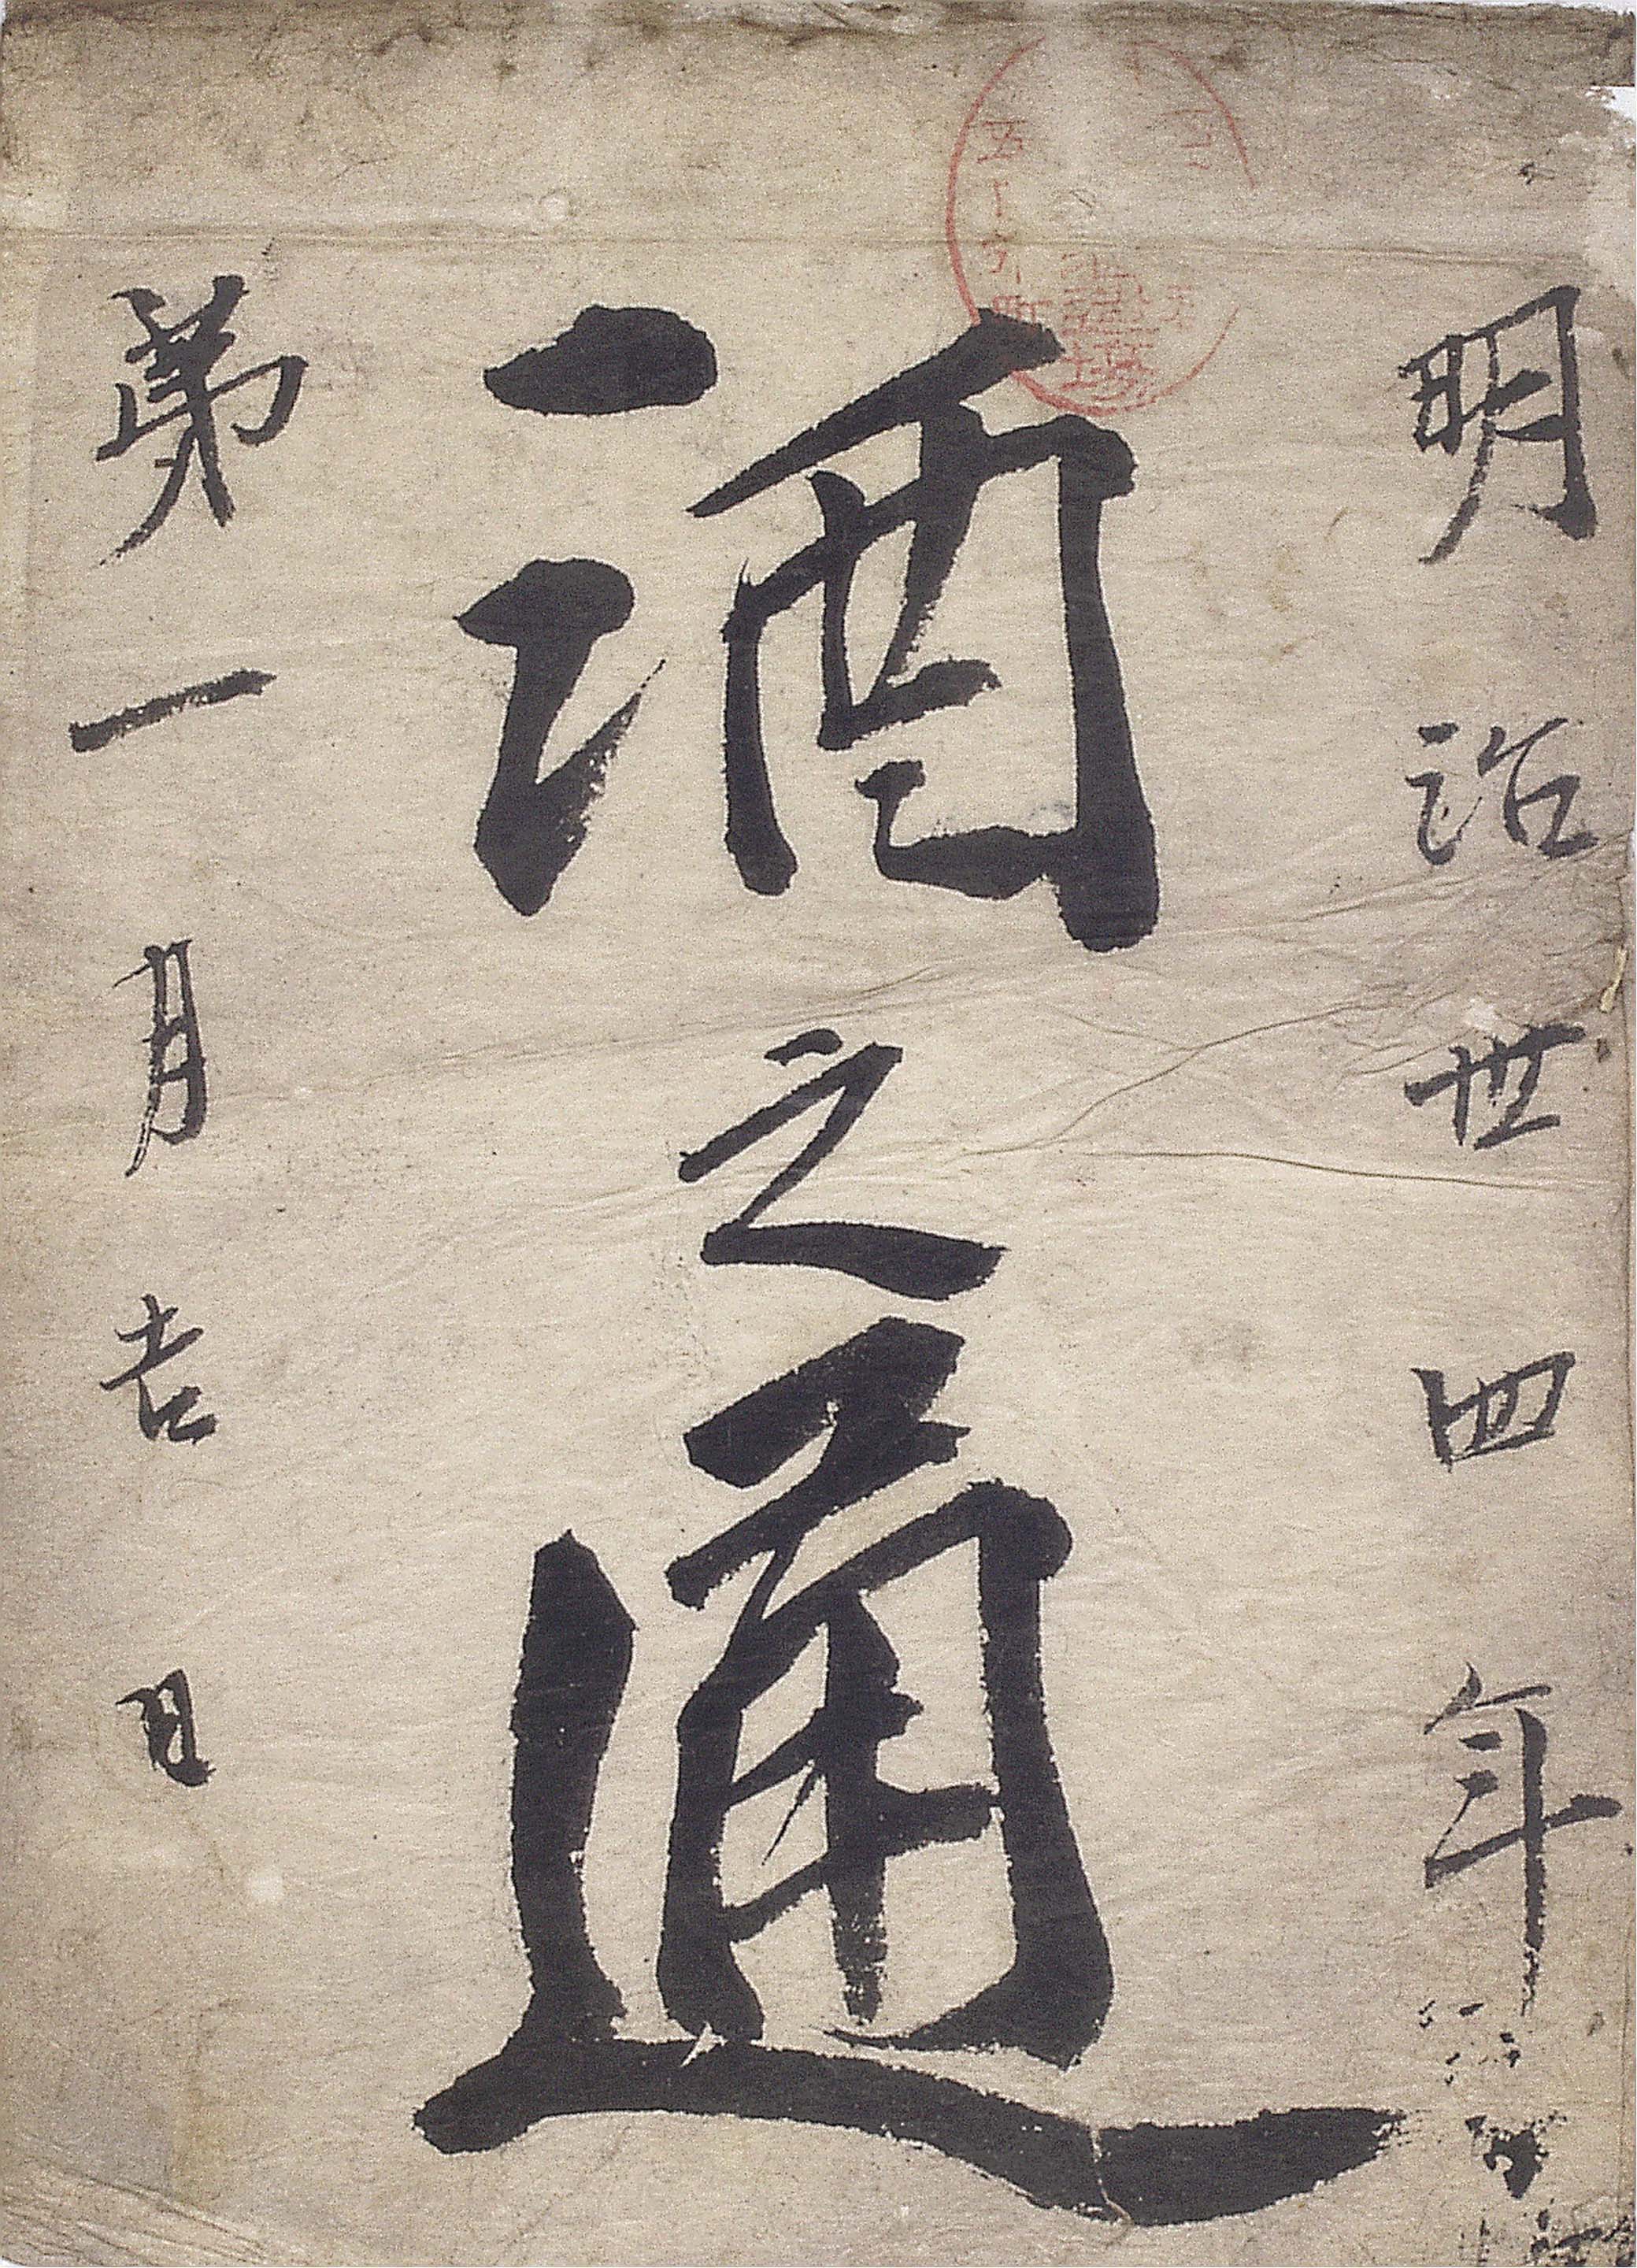 明治丗四年
酒之通
第一月吉日